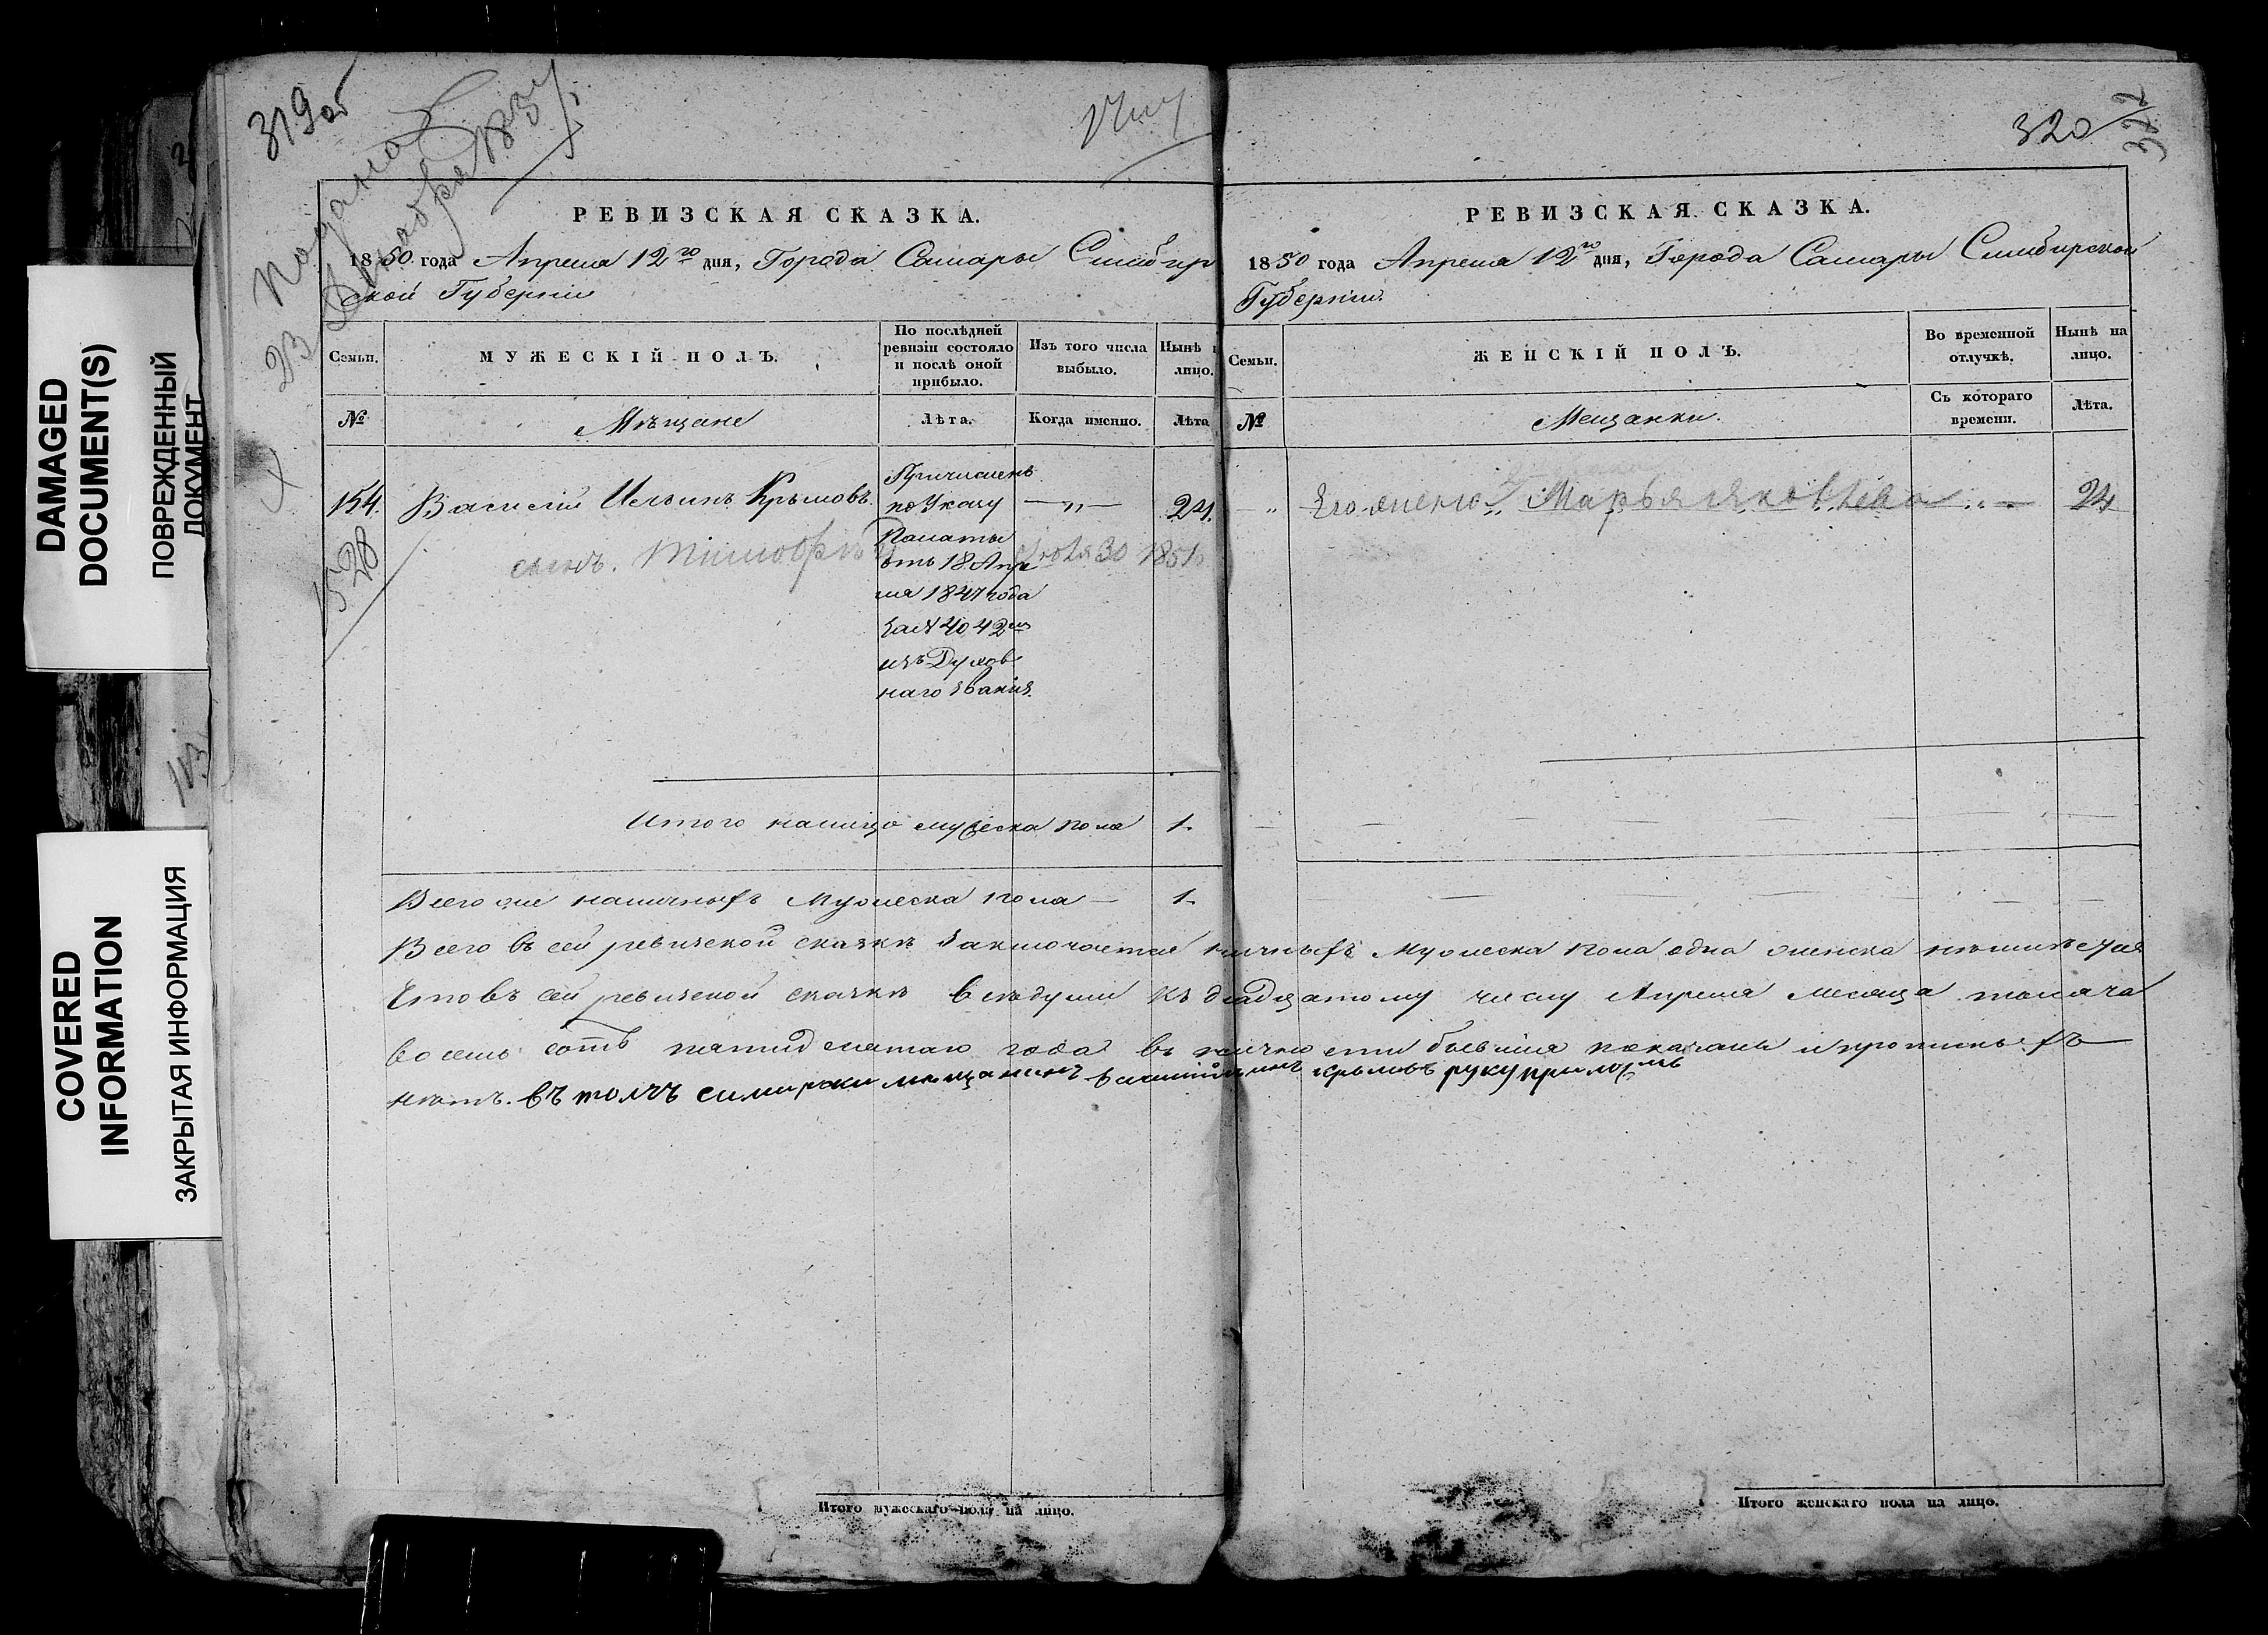 319 об
Подана
23 Декабря 1857
РЕВИЗСКАЯ СКАЗКА.
1850 года Апреля 12го дня, Города Самары Симбир
ской Губернии
Семьи.
МУЖЕСКІЙ ПОЛЪ.
По послѣдней ревизіи состояло и послѣ оной прибыло.
Изъ того числа выбыло.
Нынѣ на лицо.
№
Мѣщане
Лѣта.
Когда именно.
Лѣта
154.
Василій Ильинъ Крыловъ
Причисленъ
по Указу
— „ —
24.
сынъ. Тимофѣй
Палаты
Іюля 30 1851
отъ 18 Апре
ля 1847 года
за № 4042м
изъ Духов
наго званія.
1528
Итого налицо мужеска пола 1.
Всего же наличныхъ Мужеска пола — 1.
320
322
РЕВИЗСКАЯ СКАЗКА.
1850 года Апреля 12го дня, Города Самары Симбирской
Губернии.
Семьи.
ЖЕНСКІЙ ПОЛЪ.
Во временной отлучкѣ.
Нынѣ на лицо.
№
Мещанки.
Съ котораго времени.
Лѣта.
— „
Его жена Марья Яковлева „ — 24
Всего въ сей ревизской сказкѣ Заключается личныхъ Мужеска пола одна женска
Что въ сей ревизской сказкѣ всѣ души къ двадцатому числу Апреля месяца тысяча
восемь сотъ пятидесятаго года въ личности бывшия показаны и прописныхъ
нѣтъ. въ томъ самарски мещанинъ василий ильинъ крыловъ руку приложилъ
Итого мужескаго пола на лицо.
Итого женскаго пола на лицо.
DAMAGED
DOCUMENT(S)
ПОВРЕЖДЕННЫЙ
ДОКУМЕНТ
COVERED
INFORMATION
ЗАКРЫТАЯ ИНФОРМАЦИЯ